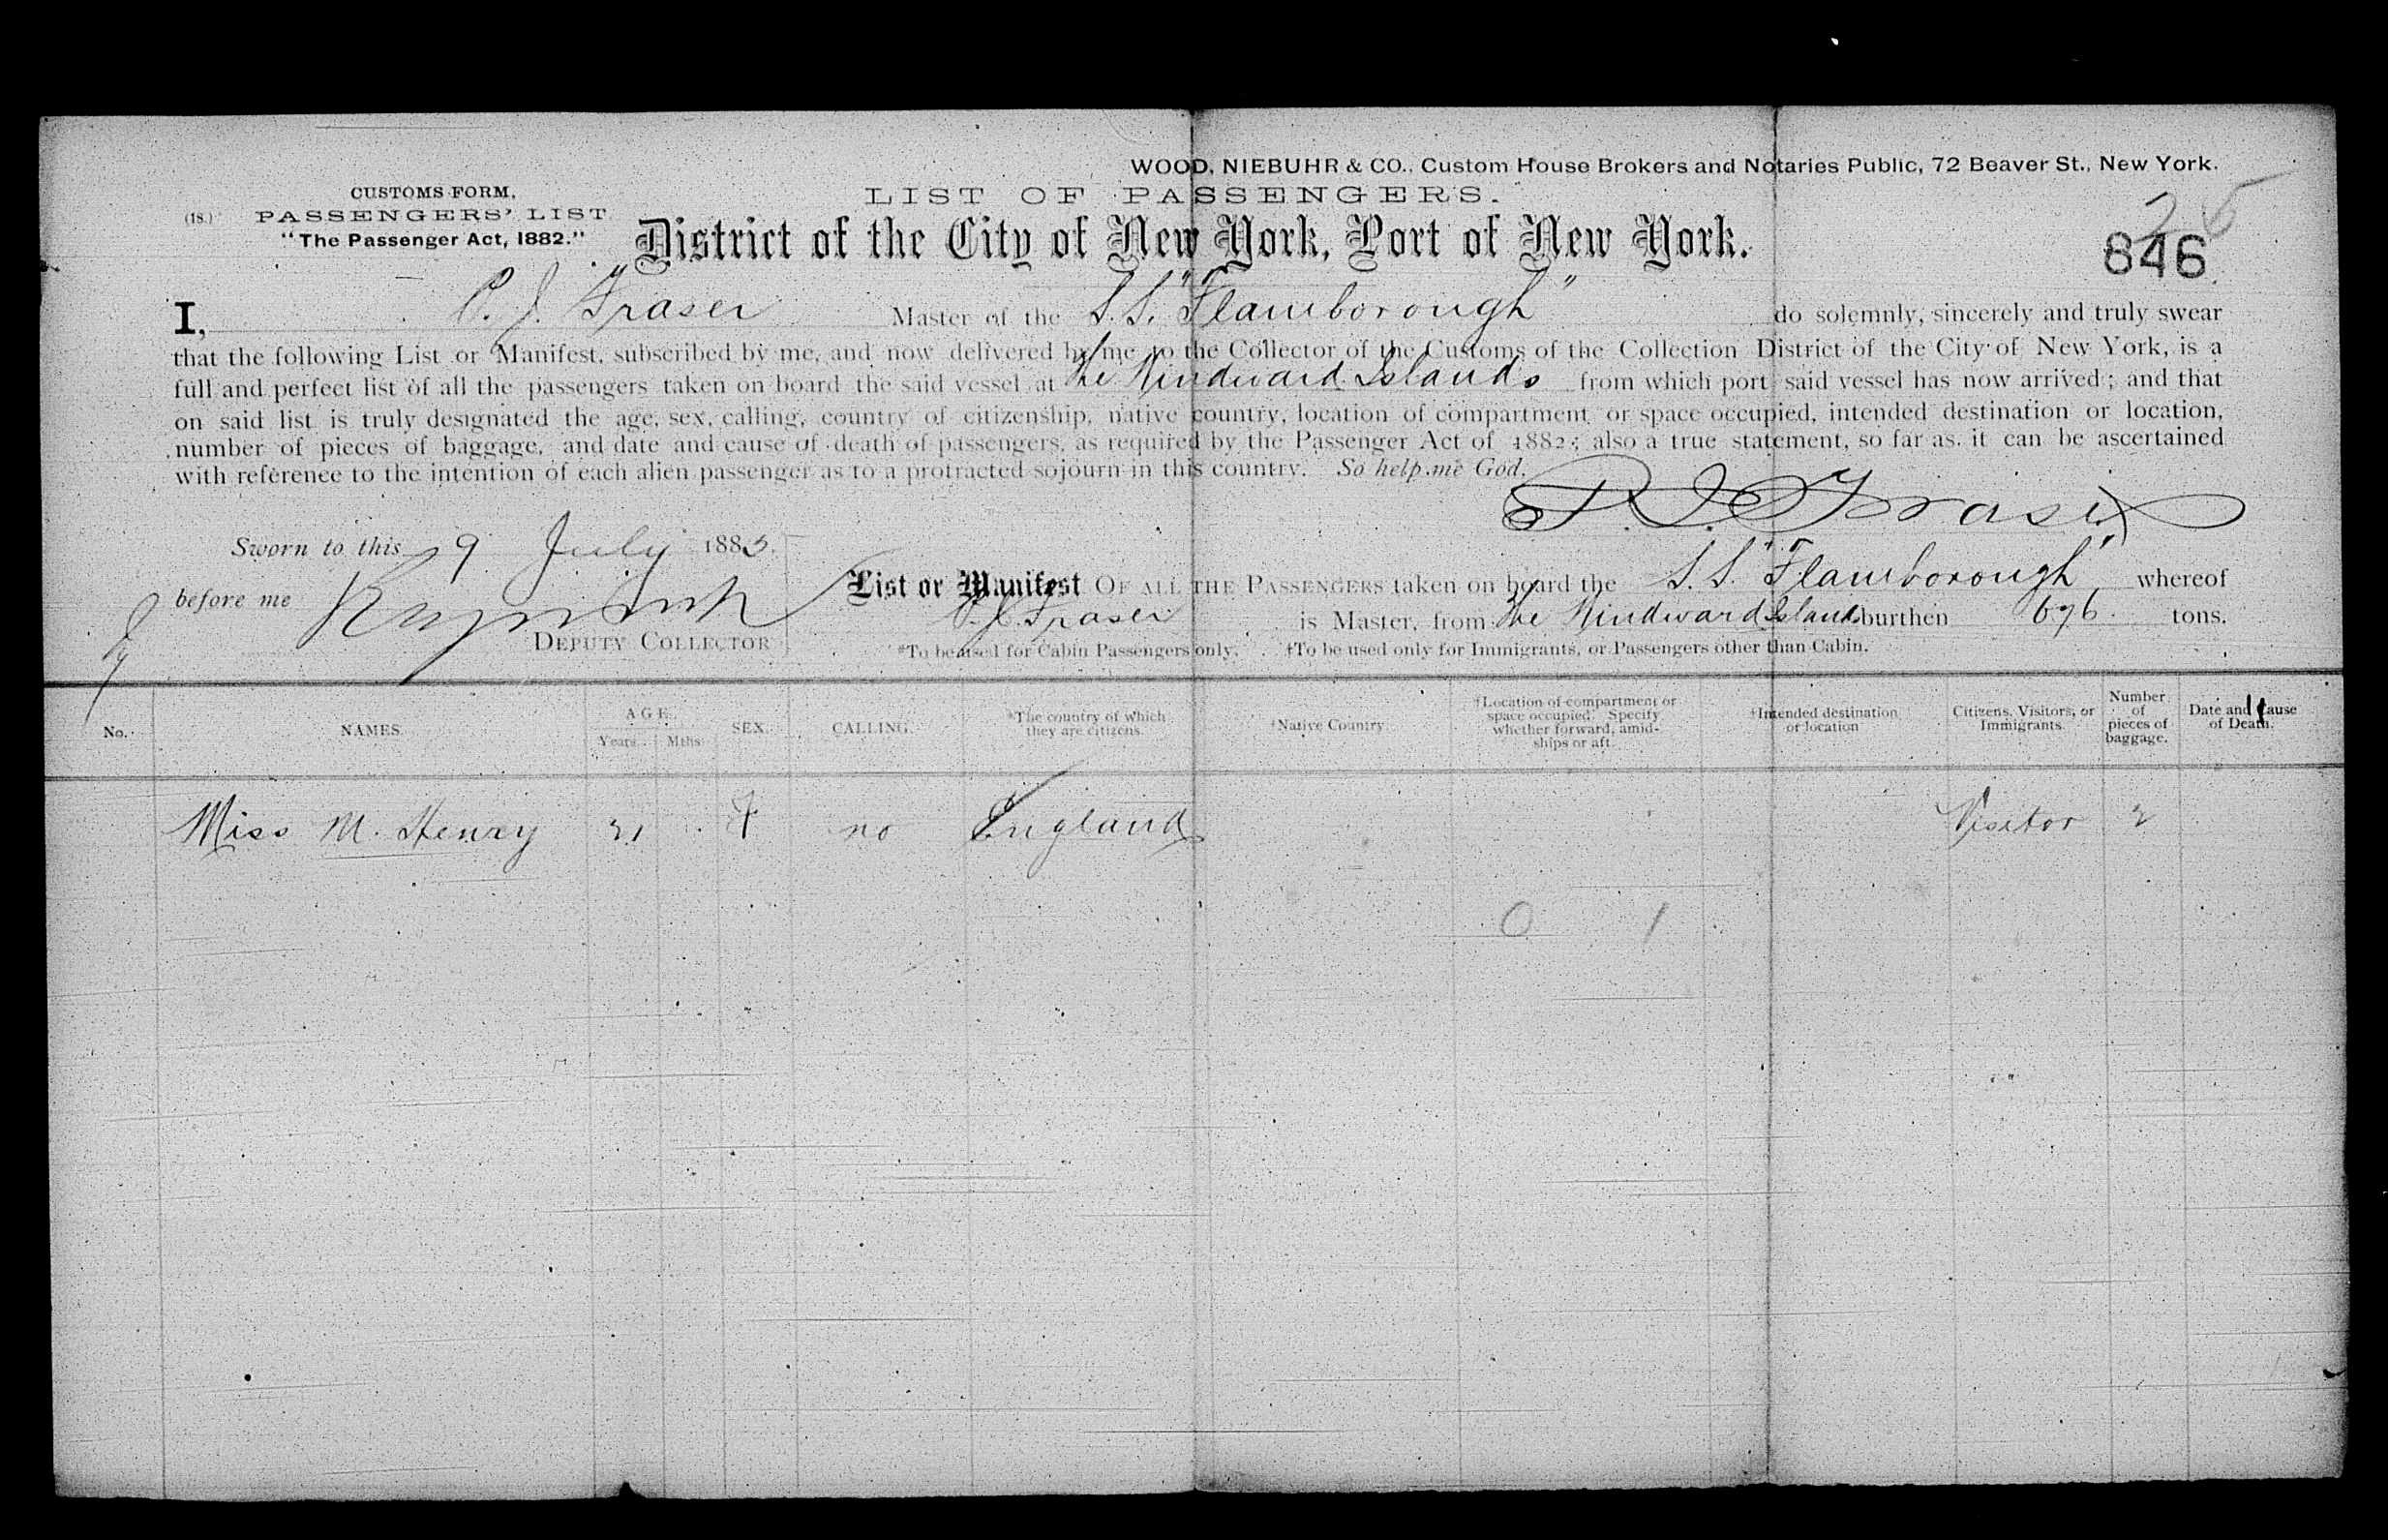 WOOD, NIEBUHR & CO., Custom House Brokers and Notaries Public, 72 Beaver St., New York.
CUSTOMS FORM,
(18.) PASSENGERS' LIST
"The Passenger Act, 1882."
LIST OF PASSENGERS.
District of the City of New York, Port of New York.
26
846
I, P. J. Fraser Master of the S.S. "Flamborough" do solemnly, sincerely and truly swear
that the following List or Manifest, subscribed by me, and now delivered by me to the Collector of the Customs of the Collection District of the City of New York, is a
full and perfect list of all the passengers taken on board the said vessel at the Windward Islands from which port said vessel has now arrived; and that
on said list is truly designated the age, sex, calling, country of citizenship, native country, location of compartment or space occupied, intended destination or location,
number of pieces of baggage, and date and cause of death of passengers, as required by the Passenger Act of 1882; also a true statement, so far as it can be ascertained
with reference to the intention of each alien passenger as to a protracted sojourn in this country. So help me God.
P. J. Fraser
Sworn to this 9 July 1883.
before me
DEPUTY COLLECTOR
List or Manifest OF ALL THE PASSENGERS taken on board the S.S. "Flamborough" whereof
P. J. Fraser is Master, from the Windward Islands burthen 696 tons.
*To be used for Cabin Passengers only. †To be used only for Immigrants, or Passengers other than Cabin.
No. NAMES. AGE. Years. Mths. SEX. CALLING. *The country of which they are citizens. †Native Country †Location of compartment or space occupied. Specify whether forward, amidships or aft. †Intended destination or location Citizens, Visitors, or Immigrants. Number of pieces of baggage. Date and Cause of Death.
Miss M. Henry 21 F no England Visitor 2
0 1